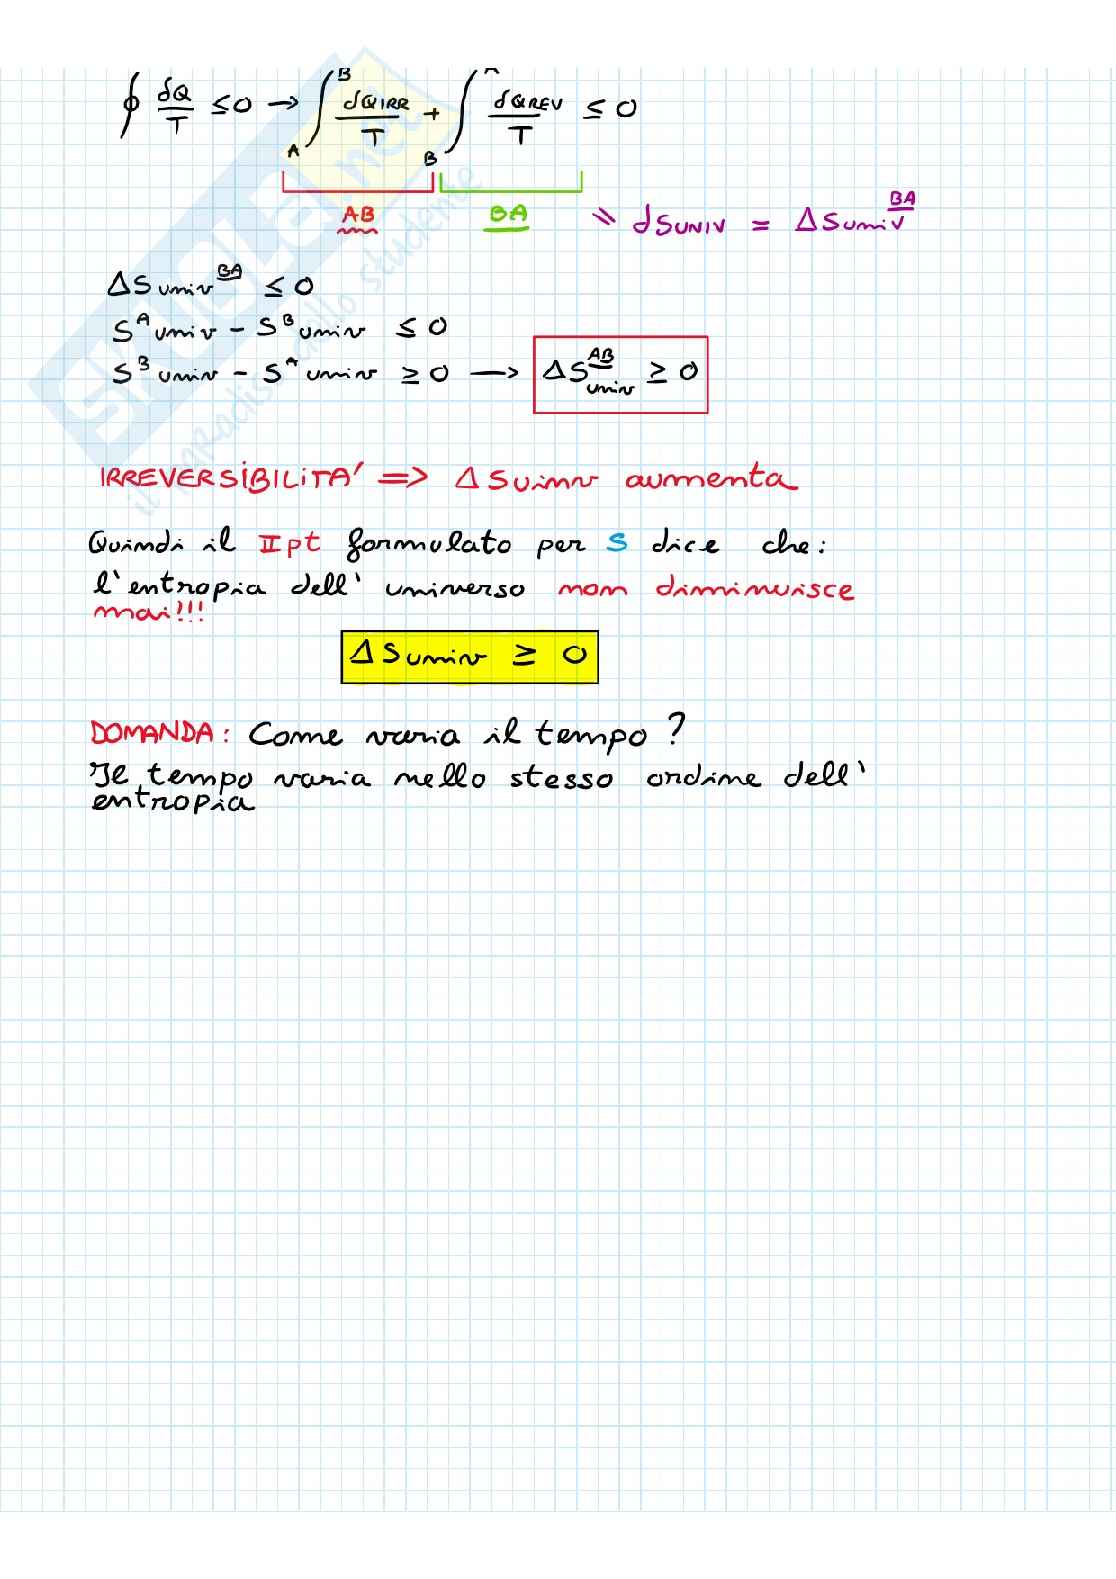 ∮ δQ/T ≤ 0 → ∫_A^B δQIRR/T + ∫_B^A δQREV/T ≤ 0
AB BA dSUNIV = ΔSumiv^BA
ΔSumiv^BA ≤ 0
S^A umiv - S^B umiv ≤ 0
S^B umiv - S^A umiv ≥ 0 → ΔS^AB umiv ≥ 0
IRREVERSIBILITA' => ΔSuimv aumenta
Quindi il II pt formulato per S dice che:
l'entropia dell' universo non diminuisce
mai!!!
ΔSumiv ≥ 0
DOMANDA: Come varia il tempo?
Il tempo varia nello stesso ordine dell'
entropia
SKUOLA.net
il paradiso dello studente